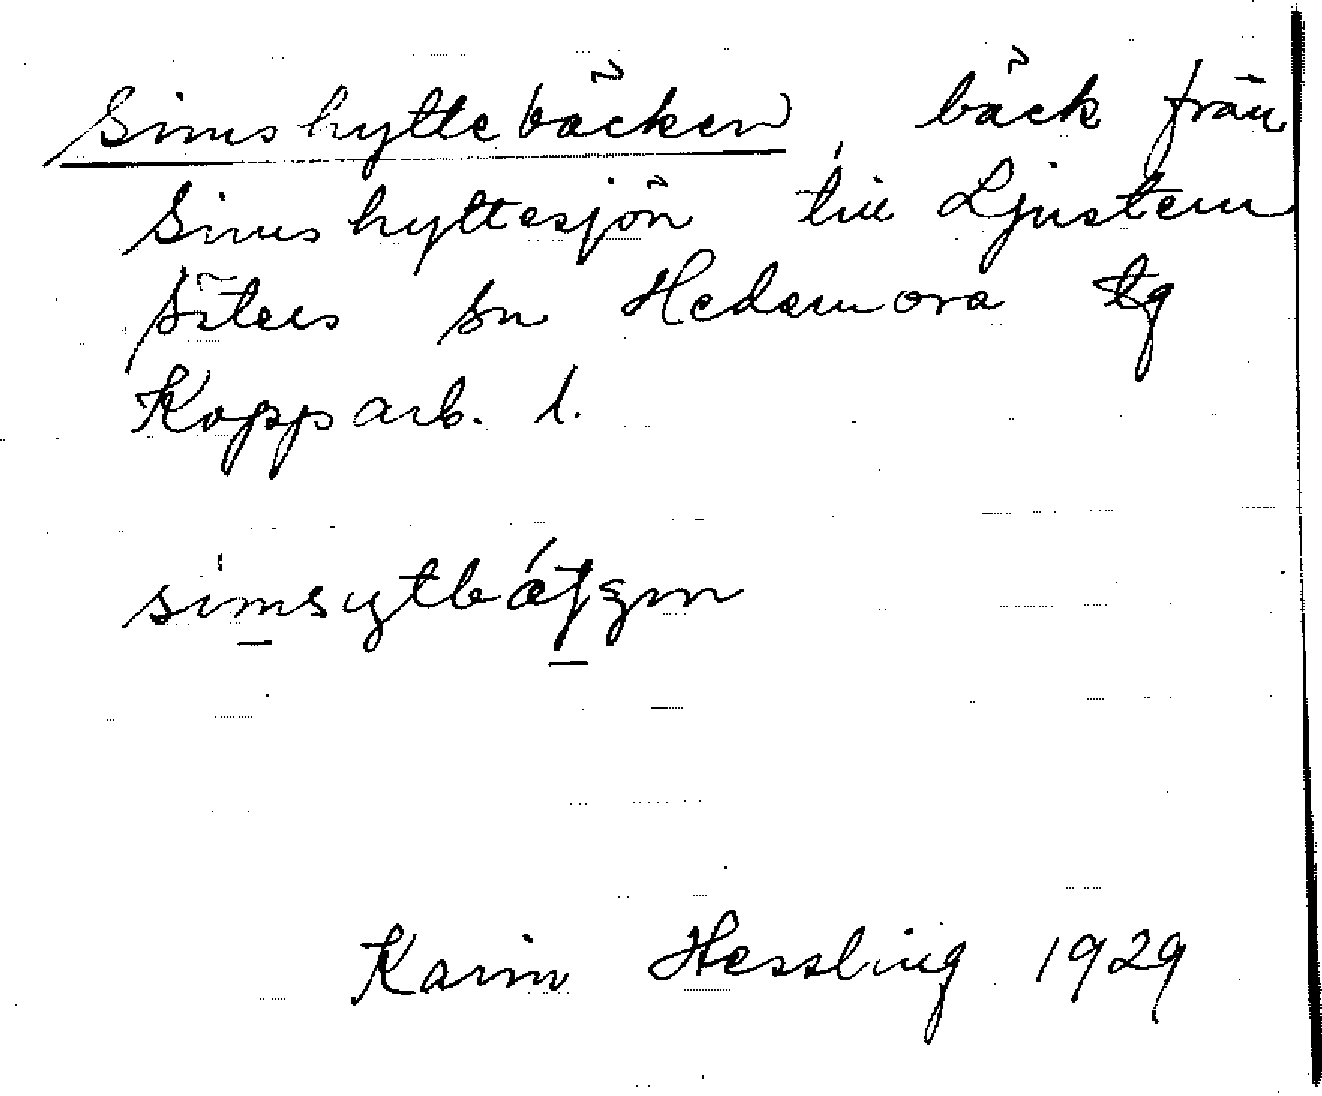 Simshyttebäcken bäck från
Simshyttesjön till Ljustern
Säters sn Hedemora tg
Kopparb. l.
Karin Hessling 1929